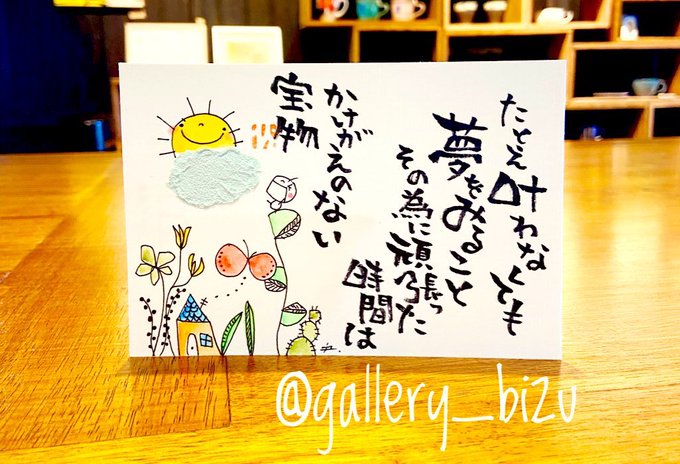 たとえ叶わなくとも
夢をみること
その為に頑張った
時間は
かけがえのない
宝物
@gallery_bizu